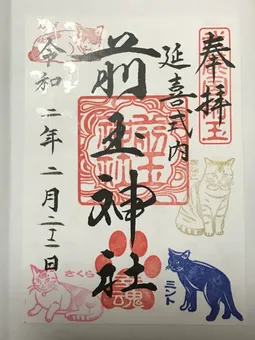 奉拝
延喜式内
前玉神社
令和二年二月二十二日
さくら
魂
ミント